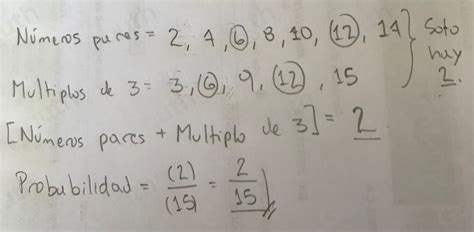 Números pares = 2, 4, 6, 8, 10, 12, 14 } Solo hay 2.
Multiplos de 3 = 3, 6, 9, 12, 15
[Números pares + Multiplo de 3] = 2
Probabilidad = (2)/(15) = 2/15